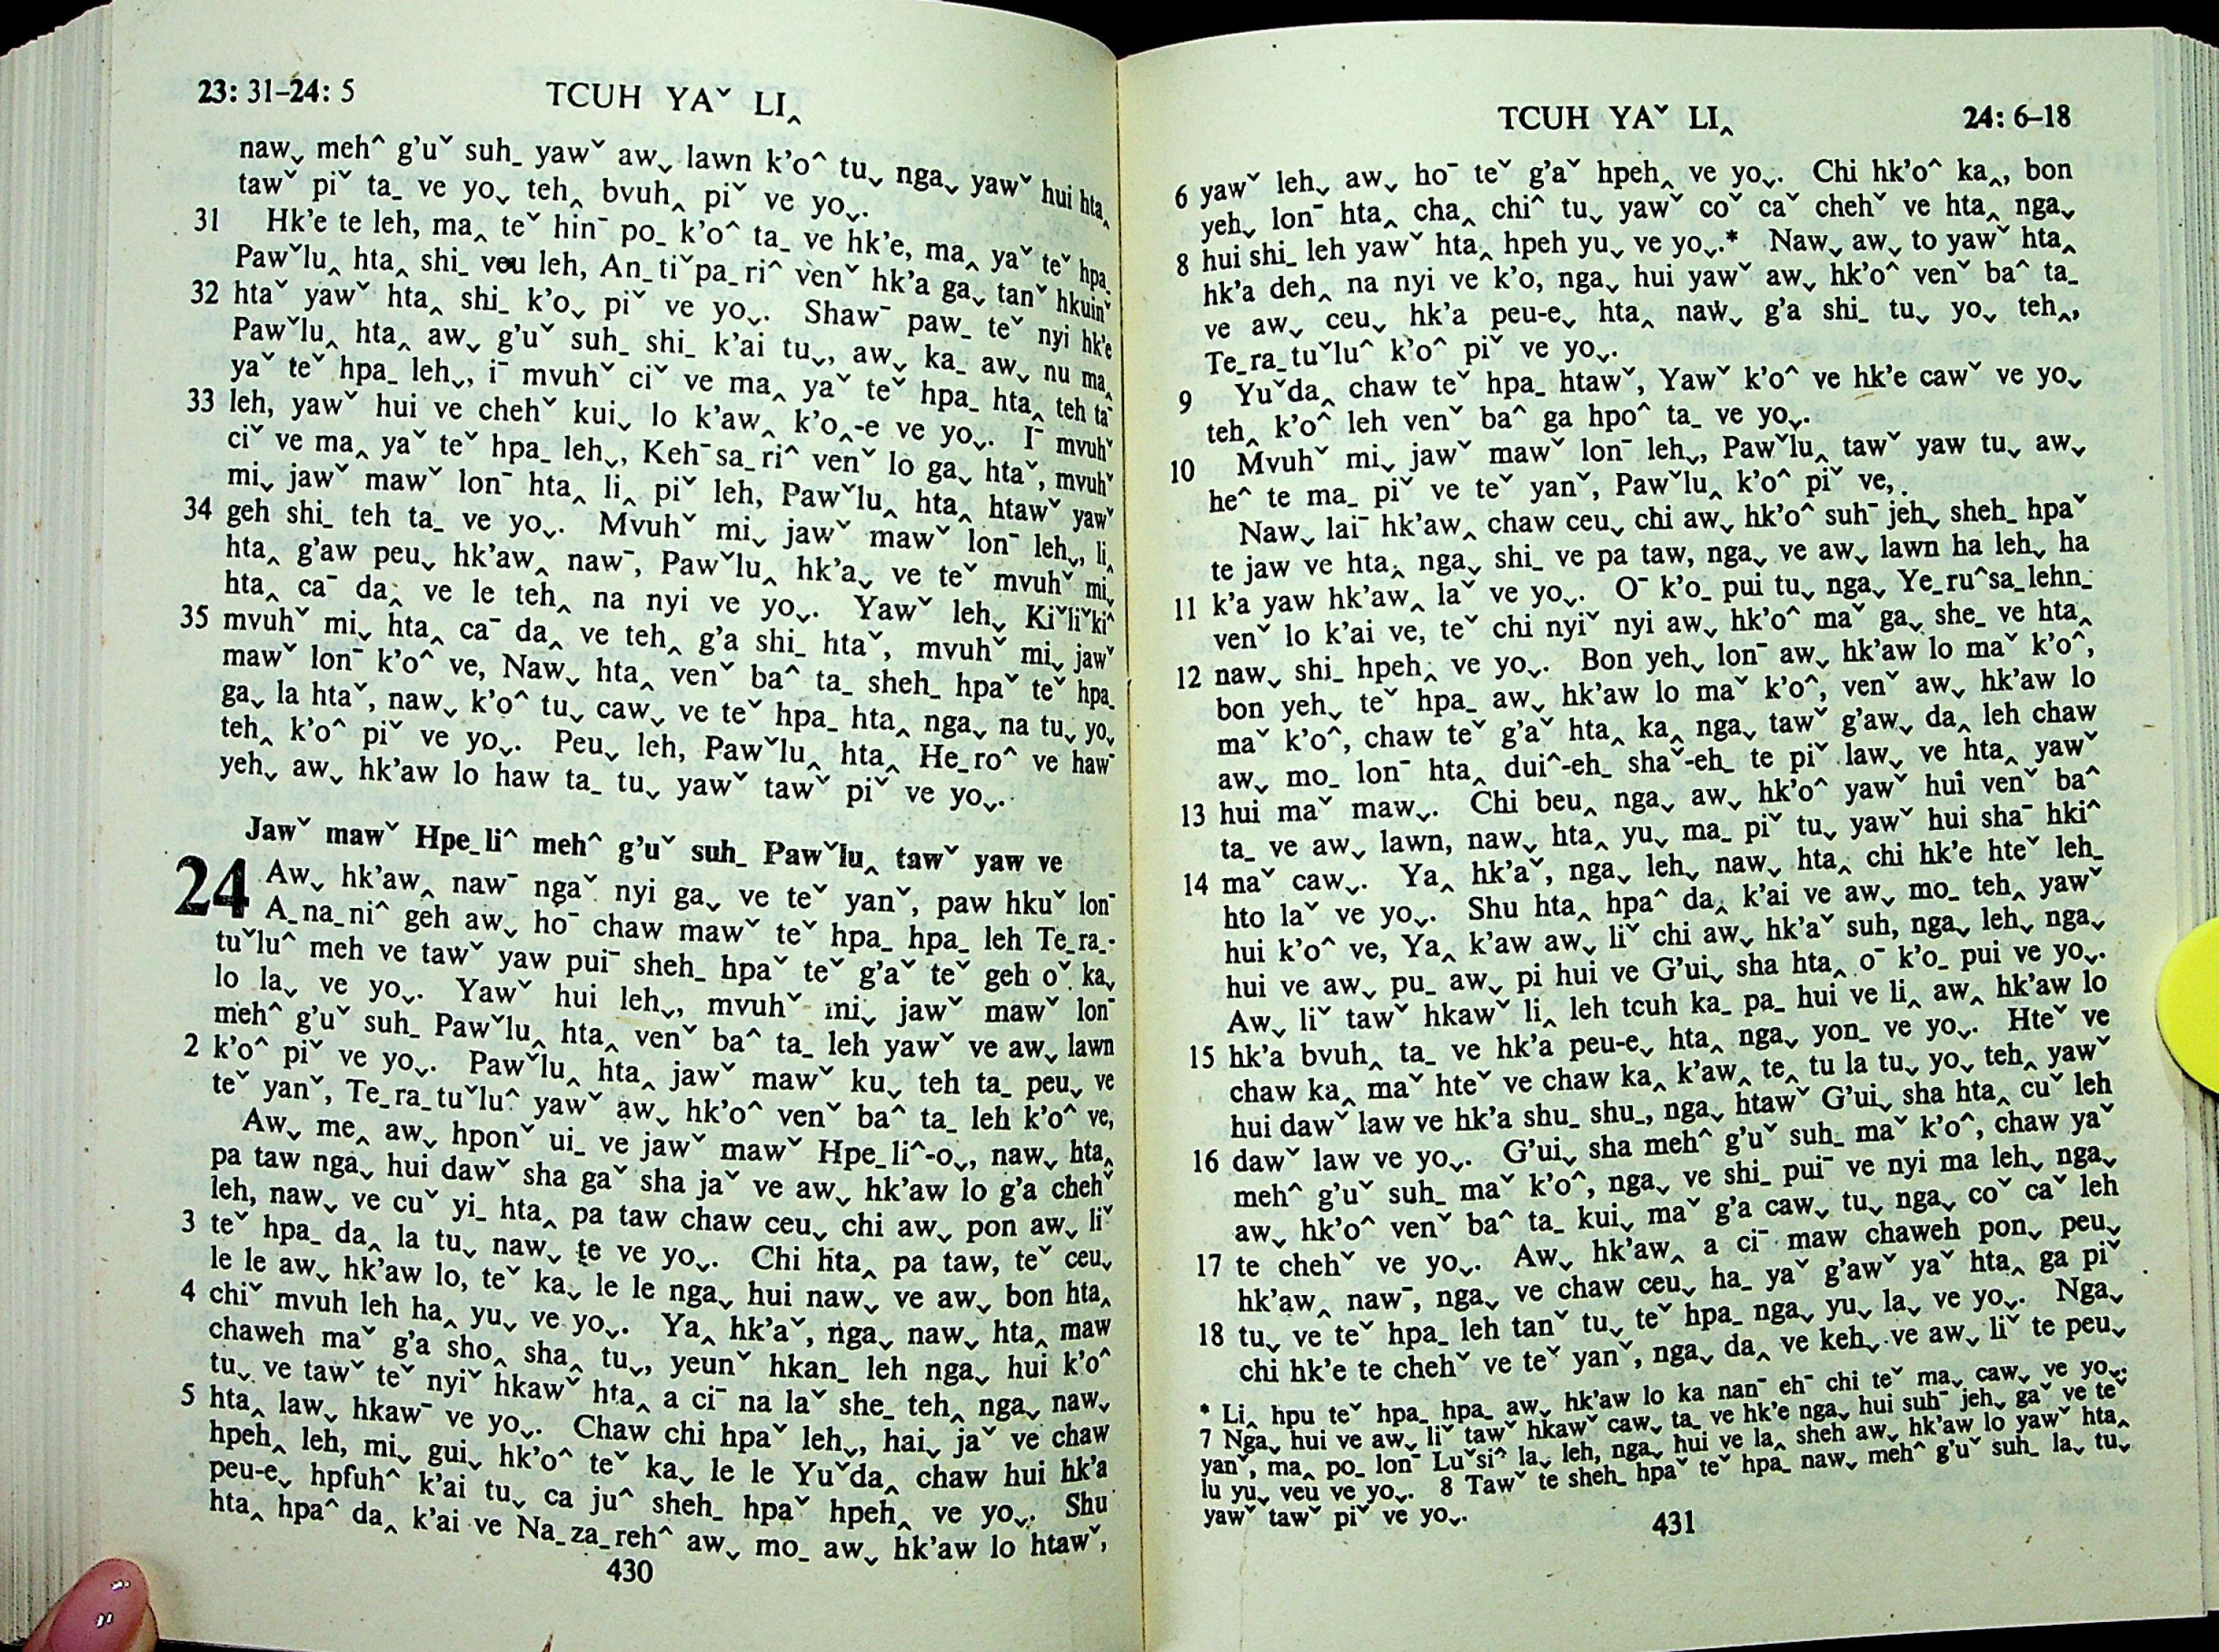 23: 31–24: 5
TCUH YAˇ LI‸
naw˯ meh^ g'uˇ suh_ yawˇ aw˯ lawn k'o^ tu˯ nga˯ yawˇ hui hta‸
tawˇ piˇ ta_ ve yo˯ teh‸ bvuh‸ piˇ ve yo˯.
31 Hk'e te leh, ma‸ teˇ hin¯ po_ k'o^ ta_ ve hk'e, ma‸ yaˇ teˇ hpa_
Pawˇlu‸ hta‸ shi_ veu leh, An_tiˇpa_ri^ venˇ hk'a ga˯ tanˇ hkuinˇ
32 htaˇ yawˇ hta‸ shi_ k'o˯ piˇ ve yo˯. Shaw¯ paw_ teˇ nyi hk'e
Pawˇlu‸ hta‸ aw˯ g'uˇ suh_ shi_ k'ai tu˯, aw˯ ka_ aw˯ nu ma‸
yaˇ teˇ hpa_ leh˯, i¯ mvuhˇ ciˇ ve ma‸ yaˇ teˇ hpa_ hta‸ teh ta¯
33 leh, yawˇ hui ve chehˇ kui˯ lo k'aw‸ k'o‸-e ve yo˯. I¯ mvuhˇ
ciˇ ve ma‸ yaˇ teˇ hpa_ leh˯, Keh¯sa_ri^ venˇ lo ga˯ htaˇ, mvuhˇ
mi˯ jawˇ mawˇ lon¯ hta‸ li‸ piˇ leh, Pawˇlu‸ hta‸ htawˇ yawˇ
34 geh shi_ teh ta_ ve yo˯. Mvuhˇ mi˯ jawˇ mawˇ lon¯ leh˯, li‸
hta‸ g'aw peu˯ hk'aw‸ naw¯, Pawˇlu‸ hk'a˯ ve teˇ mvuhˇ mi˯
hta‸ ca¯ da‸ ve le teh‸ na nyi ve yo˯. Yawˇ leh˯ Kiˇliˇki^
35 mvuhˇ mi˯ hta‸ ca¯ da‸ ve teh‸ g'a shi_ htaˇ, mvuhˇ mi˯ jawˇ
mawˇ lon¯ k'o^ ve, Naw˯ hta‸ venˇ ba^ ta_ sheh_ hpaˇ teˇ hpa_
ga˯ la htaˇ, naw˯ k'o^ tu˯ caw˯ ve teˇ hpa_ hta‸ nga˯ na tu˯ yo˯
teh‸ k'o^ piˇ ve yo˯. Peu˯ leh, Pawˇlu‸ hta‸ He_ro^ ve haw¯
yeh˯ aw˯ hk'aw lo haw ta_ tu˯ yawˇ tawˇ piˇ ve yo˯.
Jawˇ mawˇ Hpe_li^ meh^ g'uˇ suh_ Pawˇlu‸ tawˇ yaw ve
24 Aw˯ hk'aw‸ naw¯ ngaˇ nyi ga˯ ve teˇ yanˇ, paw hkuˇ lon¯
A_na_ni^ geh aw˯ ho¯ chaw mawˇ teˇ hpa_ hpa_ leh Te_ra_-
tuˇlu^ meh ve tawˇ yaw pui¯ sheh_ hpaˇ teˇ g'aˇ teˇ geh oˇ ka˯
lo la˯ ve yo˯. Yawˇ hui leh˯, mvuhˇ mi˯ jawˇ mawˇ lon¯
meh^ g'uˇ suh_ Pawˇlu‸ hta‸ venˇ ba^ ta_ leh yawˇ ve aw˯ lawn
2 k'o^ piˇ ve yo˯. Pawˇlu‸ hta‸ jawˇ mawˇ ku˯ teh ta_ peu˯ ve
teˇ yanˇ, Te_ra_tuˇlu^ yawˇ aw˯ hk'o^ venˇ ba^ ta_ leh k'o^ ve,
Aw˯ me‸ aw˯ hponˇ ui_ ve jawˇ mawˇ Hpe_li^-o˯, naw˯ hta‸
pa taw nga˯ hui dawˇ sha gaˇ sha jaˇ ve aw˯ hk'aw lo g'a chehˇ
leh, naw˯ ve cuˇ yi_ hta‸ pa taw chaw ceu˯ chi aw˯ pon aw˯ liˇ
3 teˇ hpa_ da‸ la tu˯ naw˯ te ve yo˯. Chi hta‸ pa taw, teˇ ceu˯
le le aw˯ hk'aw lo, teˇ ka˯ le le nga˯ hui naw˯ ve aw˯ bon hta‸
4 chiˇ mvuh leh ha‸ yu˯ ve yo˯. Ya‸ hk'aˇ, nga˯ naw˯ hta‸ maw
chaweh maˇ g'a sho‸ sha‸ tu˯, yeunˇ hkan_ leh nga˯ hui k'o^
tu˯ ve tawˇ teˇ nyiˇ hkawˇ hta‸ a ci¯ na laˇ she_ teh‸ nga˯ naw˯
5 hta‸ law˯ hkaw¯ ve yo˯. Chaw chi hpaˇ leh˯, hai˯ jaˇ ve chaw
hpeh‸ leh, mi˯ gui˯ hk'o^ teˇ ka˯ le le Yuˇda‸ chaw hui hk'a
peu-e˯ hpfuh^ k'ai tu˯ ca ju^ sheh_ hpaˇ hpeh‸ ve yo˯. Shu
hta‸ hpa^ da‸ k'ai ve Na_za_reh^ aw˯ mo_ aw˯ hk'aw lo htawˇ,
430
TCUH YAˇ LI‸
24: 6–18
6 yawˇ leh˯ aw˯ ho¯ teˇ g'aˇ hpeh‸ ve yo˯. Chi hk'o^ ka‸, bon
yeh˯ lon¯ hta‸ cha‸ chi^ tu˯ yawˇ coˇ caˇ chehˇ ve hta‸ nga˯
8 hui shi_ leh yawˇ hta‸ hpeh yu˯ ve yo˯.* Naw˯ aw˯ to yawˇ hta‸
hk'a deh‸ na nyi ve k'o, nga˯ hui yawˇ aw˯ hk'o^ venˇ ba^ ta_
ve aw˯ ceu˯ hk'a peu-e˯ hta‸ naw˯ g'a shi_ tu˯ yo˯ teh‸,
Te_ra_tuˇlu^ k'o^ piˇ ve yo˯.
9 Yuˇda‸ chaw teˇ hpa_ htawˇ, Yawˇ k'o^ ve hk'e cawˇ ve yo˯
teh‸ k'o^ leh venˇ ba^ ga hpo^ ta_ ve yo˯.
10 Mvuhˇ mi˯ jawˇ mawˇ lon¯ leh˯, Pawˇlu‸ tawˇ yaw tu˯ aw˯
he^ te ma_ piˇ ve teˇ yanˇ, Pawˇlu‸ k'o^ piˇ ve,
Naw˯ lai¯ hk'aw‸ chaw ceu˯ chi aw˯ hk'o^ suh¯ jeh˯ sheh_ hpaˇ
te jaw ve hta‸ nga˯ shi_ ve pa taw, nga˯ ve aw˯ lawn ha leh˯ ha
11 k'a yaw hk'aw‸ laˇ ve yo˯. O¯ k'o_ pui tu˯ nga˯ Ye_ru^sa_lehn_
venˇ lo k'ai ve, teˇ chi nyiˇ nyi aw˯ hk'o^ maˇ ga˯ she_ ve hta‸
12 naw˯ shi_ hpeh‸ ve yo˯. Bon yeh˯ lon¯ aw˯ hk'aw lo maˇ k'o^,
bon yeh˯ teˇ hpa_ aw˯ hk'aw lo maˇ k'o^, venˇ aw˯ hk'aw lo
maˇ k'o^, chaw teˇ g'aˇ hta‸ ka‸ nga˯ tawˇ g'aw˯ da‸ leh chaw
aw˯ mo_ lon¯ hta‸ dui^-eh_ shaˇ-eh_ te piˇ law˯ ve hta‸ yawˇ
13 hui maˇ maw˯. Chi beu˯ nga˯ aw˯ hk'o^ yawˇ hui venˇ ba^
ta_ ve aw˯ lawn, naw˯ hta‸ yu˯ ma_ piˇ tu˯ yawˇ hui sha¯ hki^
14 maˇ caw˯. Ya‸ hk'aˇ, nga˯ leh˯ naw˯ hta‸ chi hk'e hteˇ leh_
hto laˇ ve yo˯. Shu hta‸ hpa^ da‸ k'ai ve aw˯ mo_ teh‸ yawˇ
hui k'o^ ve, Ya‸ k'aw aw˯ liˇ chi aw˯ hk'aˇ suh, nga˯ leh˯ nga˯
hui ve aw˯ pu_ aw˯ pi hui ve G'ui˯ sha hta‸ o¯ k'o_ pui ve yo˯.
Aw˯ liˇ tawˇ hkawˇ li‸ leh tcuh ka_ pa_ hui ve li‸ aw‸ hk'aw lo
15 hk'a bvuh‸ ta_ ve hk'a peu-e˯ hta‸ nga˯ yon_ ve yo˯. Hteˇ ve
chaw ka‸ maˇ hteˇ ve chaw ka‸ k'aw‸ te‸ tu la tu˯ yo˯ teh‸ yawˇ
hui dawˇ law ve hk'a shu_ shu_, nga˯ htawˇ G'ui˯ sha hta‸ cuˇ leh
16 dawˇ law ve yo˯. G'ui˯ sha meh^ g'uˇ suh_ maˇ k'o^, chaw yaˇ
meh^ g'uˇ suh_ maˇ k'o^, nga˯ ve shi_ pui¯ ve nyi ma leh˯ nga˯
aw˯ hk'o^ venˇ ba^ ta_ kui˯ maˇ g'a caw˯ tu˯ nga˯ coˇ caˇ leh
17 te chehˇ ve yo˯. Aw˯ hk'aw‸ a ci¯ maw chaweh pon˯ peu˯
hk'aw‸ naw¯, nga˯ ve chaw ceu˯ ha_ yaˇ g'awˇ yaˇ hta‸ ga piˇ
18 tu˯ ve teˇ hpa_ leh tanˇ tu˯ teˇ hpa_ nga˯ yu˯ la˯ ve yo˯. Nga˯
chi hk'e te chehˇ ve teˇ yanˇ, nga˯ da‸ ve keh˯ ve aw˯ liˇ te peu˯
* Li‸ hpu teˇ hpa_ hpa_ aw˯ hk'aw lo ka nan¯ eh¯ chi teˇ ma˯ caw˯ ve yo˯:
7 Nga˯ hui ve aw˯ liˇ tawˇ hkawˇ caw˯ ta_ ve hk'e nga˯ hui suh¯ jeh˯ gaˇ ve teˇ
yanˇ, ma‸ po_ lon¯ Luˇsi^ la˯ leh, nga˯ hui ve la‸ sheh aw˯ hk'aw lo yawˇ hta‸
lu yu˯ veu ve yo˯. 8 Tawˇ te sheh_ hpaˇ teˇ hpa_ naw˯ meh^ g'uˇ suh_ la˯ tu˯
yawˇ tawˇ piˇ ve yo˯.
431